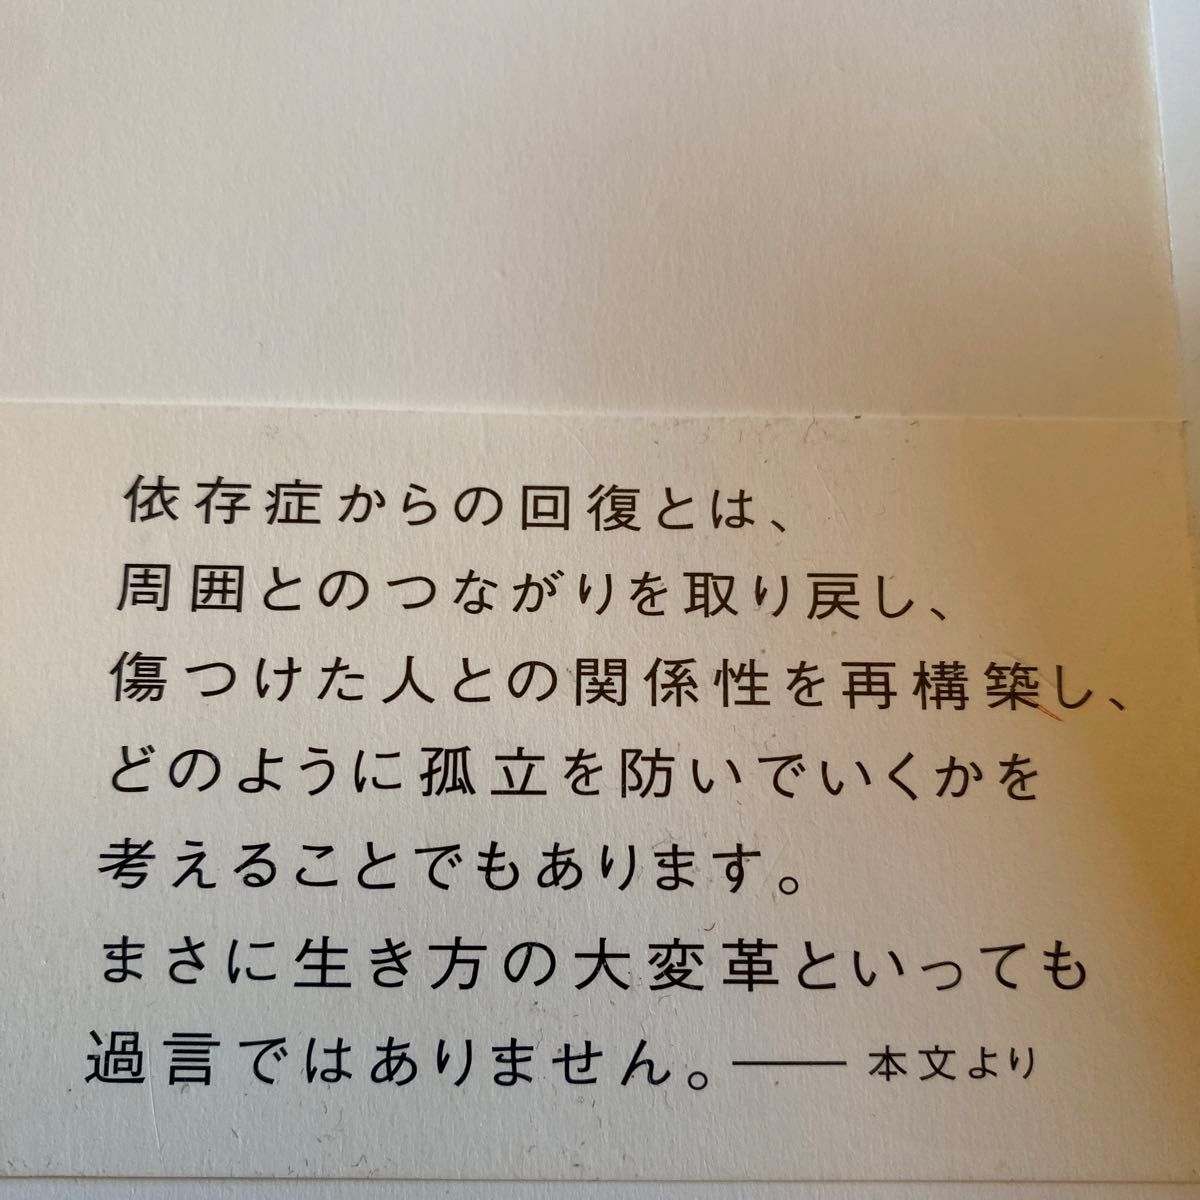 依存症からの回復とは、
周囲とのつながりを取り戻し、
傷つけた人との関係性を再構築し、
どのように孤立を防いでいくかを
考えることでもあります。
まさに生き方の大変革といっても
過言ではありません。—— 本文より